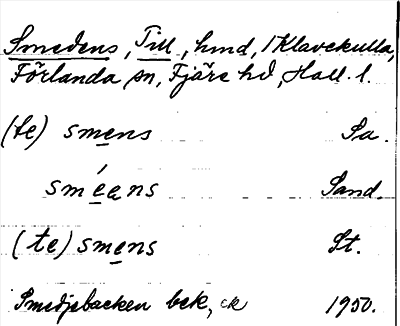 Smedens, Till, hmd, i Klavekulla,
Förlanda sn, Fjäre hd, Hall. l.
(te) smens Sa.
sméens Sand.
(te) smens St.
Smedjebacken bek, ck 1950.